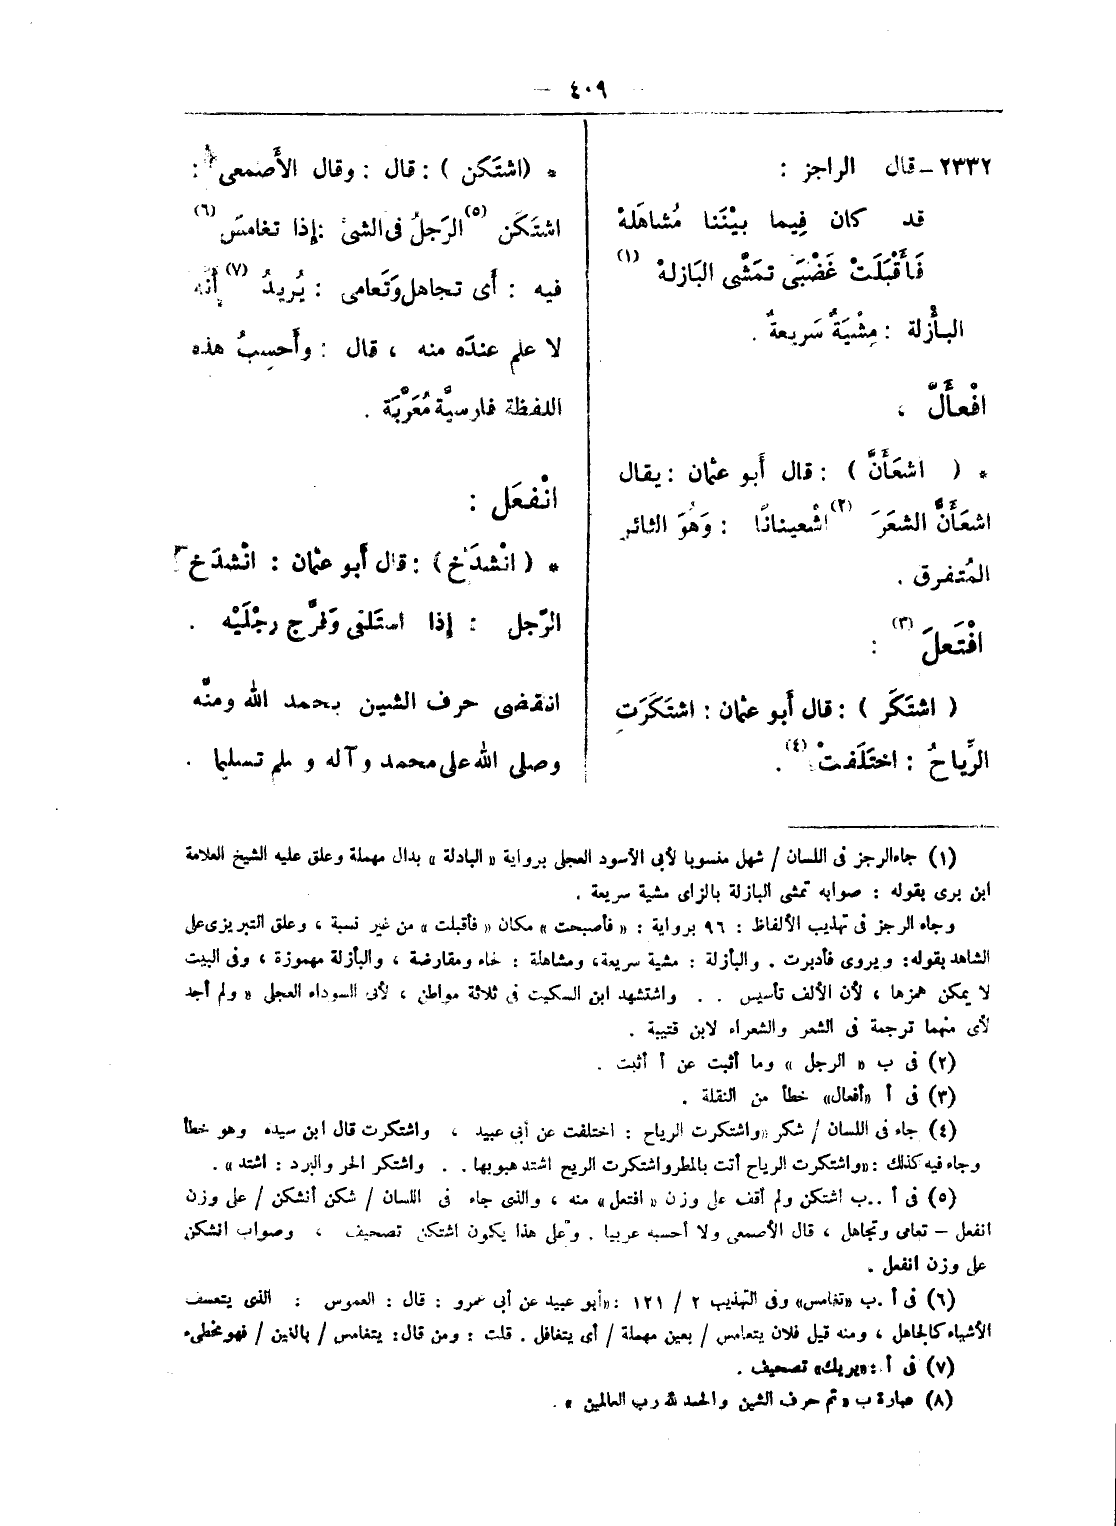 — ٤٠٩ —
٢٣٣٢ – قال الراجز :
قد كان فِيما بيْنَنا مُشاهَلهْ
فَأَقْبَلَتْ غَضْبَى تمَشَّى البَازلهْ (١)
البأْزلة : مِشْيَةٌ سَريعةٌ .
افْعأَلَّ ،
* ( اشعَأَنَّ ) : قال أَبو عثمان : يقال
اشعَأَنَّ الشعَرَ (٢) اشْعينانًا : وَهُوَ الثائر
المُتفرق .
افْتَعلَ (٣) :
( اشتَكَر ) : قال أَبو عثمان : اشتكَرَتِ
الرِّياحُ : اختَلَفتْ (٤) .
* (اشتَكن ) : قال : وقال الأَصمعى :
اشتَكَن (٥) الرَجلُ فى الشىْ : إذا تغامسَ (٦)
فيه : أَى تجاهل وَتَعامى : يُريدُ (٧) أَنه
لا علم عندَه منه ، قال : وأَحسِبُ هذه
اللفظة فارسيَّة مُعَرَّبَة .
انْفعَل :
* ( انْشدَخ ) : قال أَبو عثمان : انْشدَخ
الرَّجل : إذا استَلقى وَفرَّج رجْلَيْه .
انقضى حرف الشين بحمد الله ومنَّه
وصلى الله على محمد وآله و سلم تسليما .
(١) جاء الرجز فى اللسان / شهل منسوبا لأبى الأسود العجلى برواية « البادلة » بدال مهملة وعلق عليه الشيخ العلامة
ابن برى بقوله : صوابه تمشى البازلة بالزاى مشية سريعة .
وجاء الرجز فى تهذيب الألفاظ : ٩٦ برواية : « فأصبحت » مكان « فأقبلت » من غير نسبة ، وعلق التبريزى على
الشاهد بقوله : ويروى فأدبرت . والبأزلة : مشية سريعة، ومشاهلة : لحاء ومقارضة ، والبأزلة مهموزة ، وفى البيت
لا يمكن همزها ، لأن الألف تأسيس . . واشتشهد ابن السكيت فى ثلاثة مواطن ، لأبى السوداء العجلى « ولم أجد
لأى منهما ترجمة فى الشعر والشعراء لابن قتيبة .
(٢) فى ب « الرجل » وما أثبت عن أ أثبت .
(٣) فى أ «أفعال» خطأ من النقلة .
(٤) جاء فى اللسان / شكر «واشتكرت الرياح : اختلفت عن أبى عبيد ، واشتكرت قال ابن سيده وهو خطأ
وجاء فيه كذلك : «واشتكرت الرياح أتت بالمطر واشتكرت الريح اشتد هبوبها . . واشتكر الحر والبرد : اشتد» .
(٥) فى أ . . ب اشتكن ولم أقف على وزن « افتعل » منه ، والذى جاء فى اللسان / شكن أنشكن / على وزن
انفعل – تعامى وتجاهل ، قال الأصمعى ولا أحسبه عربيا . وعلى هذا يكون اشتكن تصحيف ، وصواب انشكن
على وزن انفعل .
(٦) فى أ . ب «تغامس» وفى التهذيب ٢ / ١٢١ : «أبو عبيد عن أبى عمرو : قال : العموس : الذى يتعسف
الأشياء كالجاهل ، ومنه قيل فلان يتعامس / بعين مهملة / أى يتغافل . قلت : ومن قال : يتغامس / بالغين / فهو مخطىء
(٧) فى أ : «يريك» تصحيف .
(٨) عبارة ب « تم حرف الشين والحمد لله رب العالمين » .